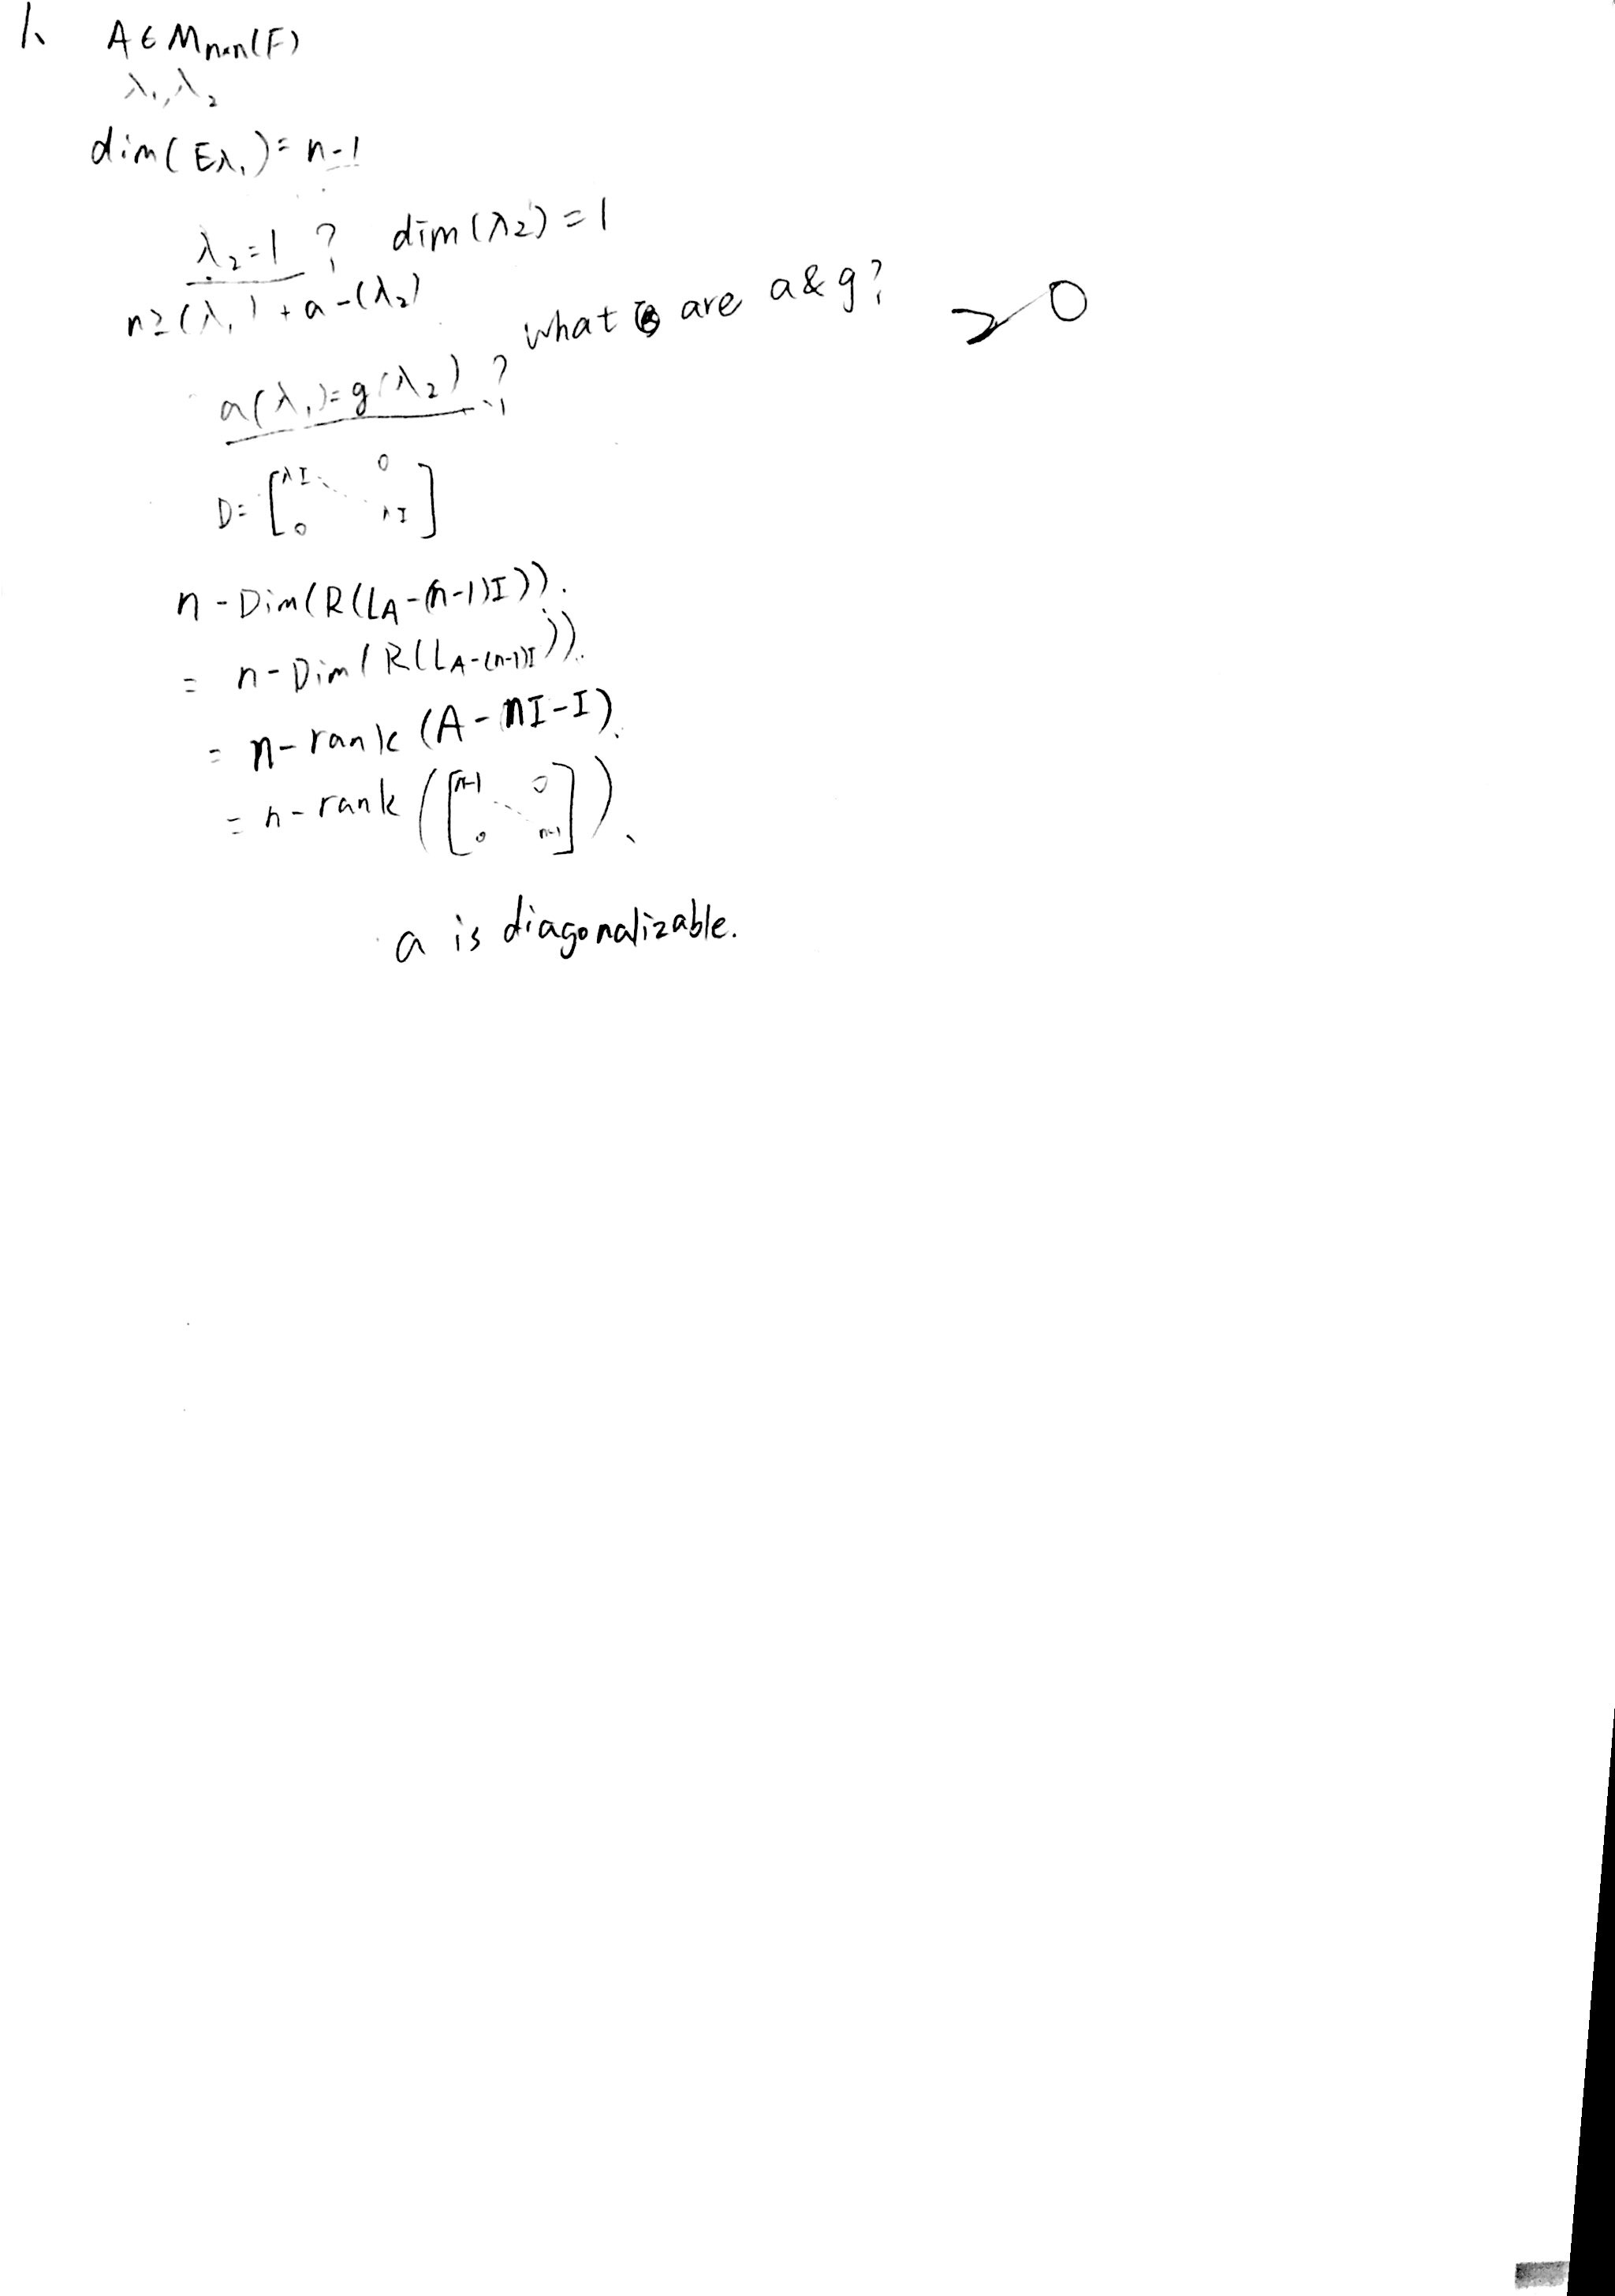 1、 A ∈ Mn×n(F)
λ1, λ2
dim(Eλ1) = n-1
λ2=1 ? dim(λ2) = 1
n≥(λ1) + a-(λ2)
what are a & g?
a(λ1)=g(λ2) ?
D= [λI 0
0 λI]
n - Dim(R(LA-(n-1)I)).
= n - Dim(R(LA-(n-1)I)).
= n - rank (A - nI - I).
= n - rank ([n-1 0
0 n-1]).
a is diagonalizable.